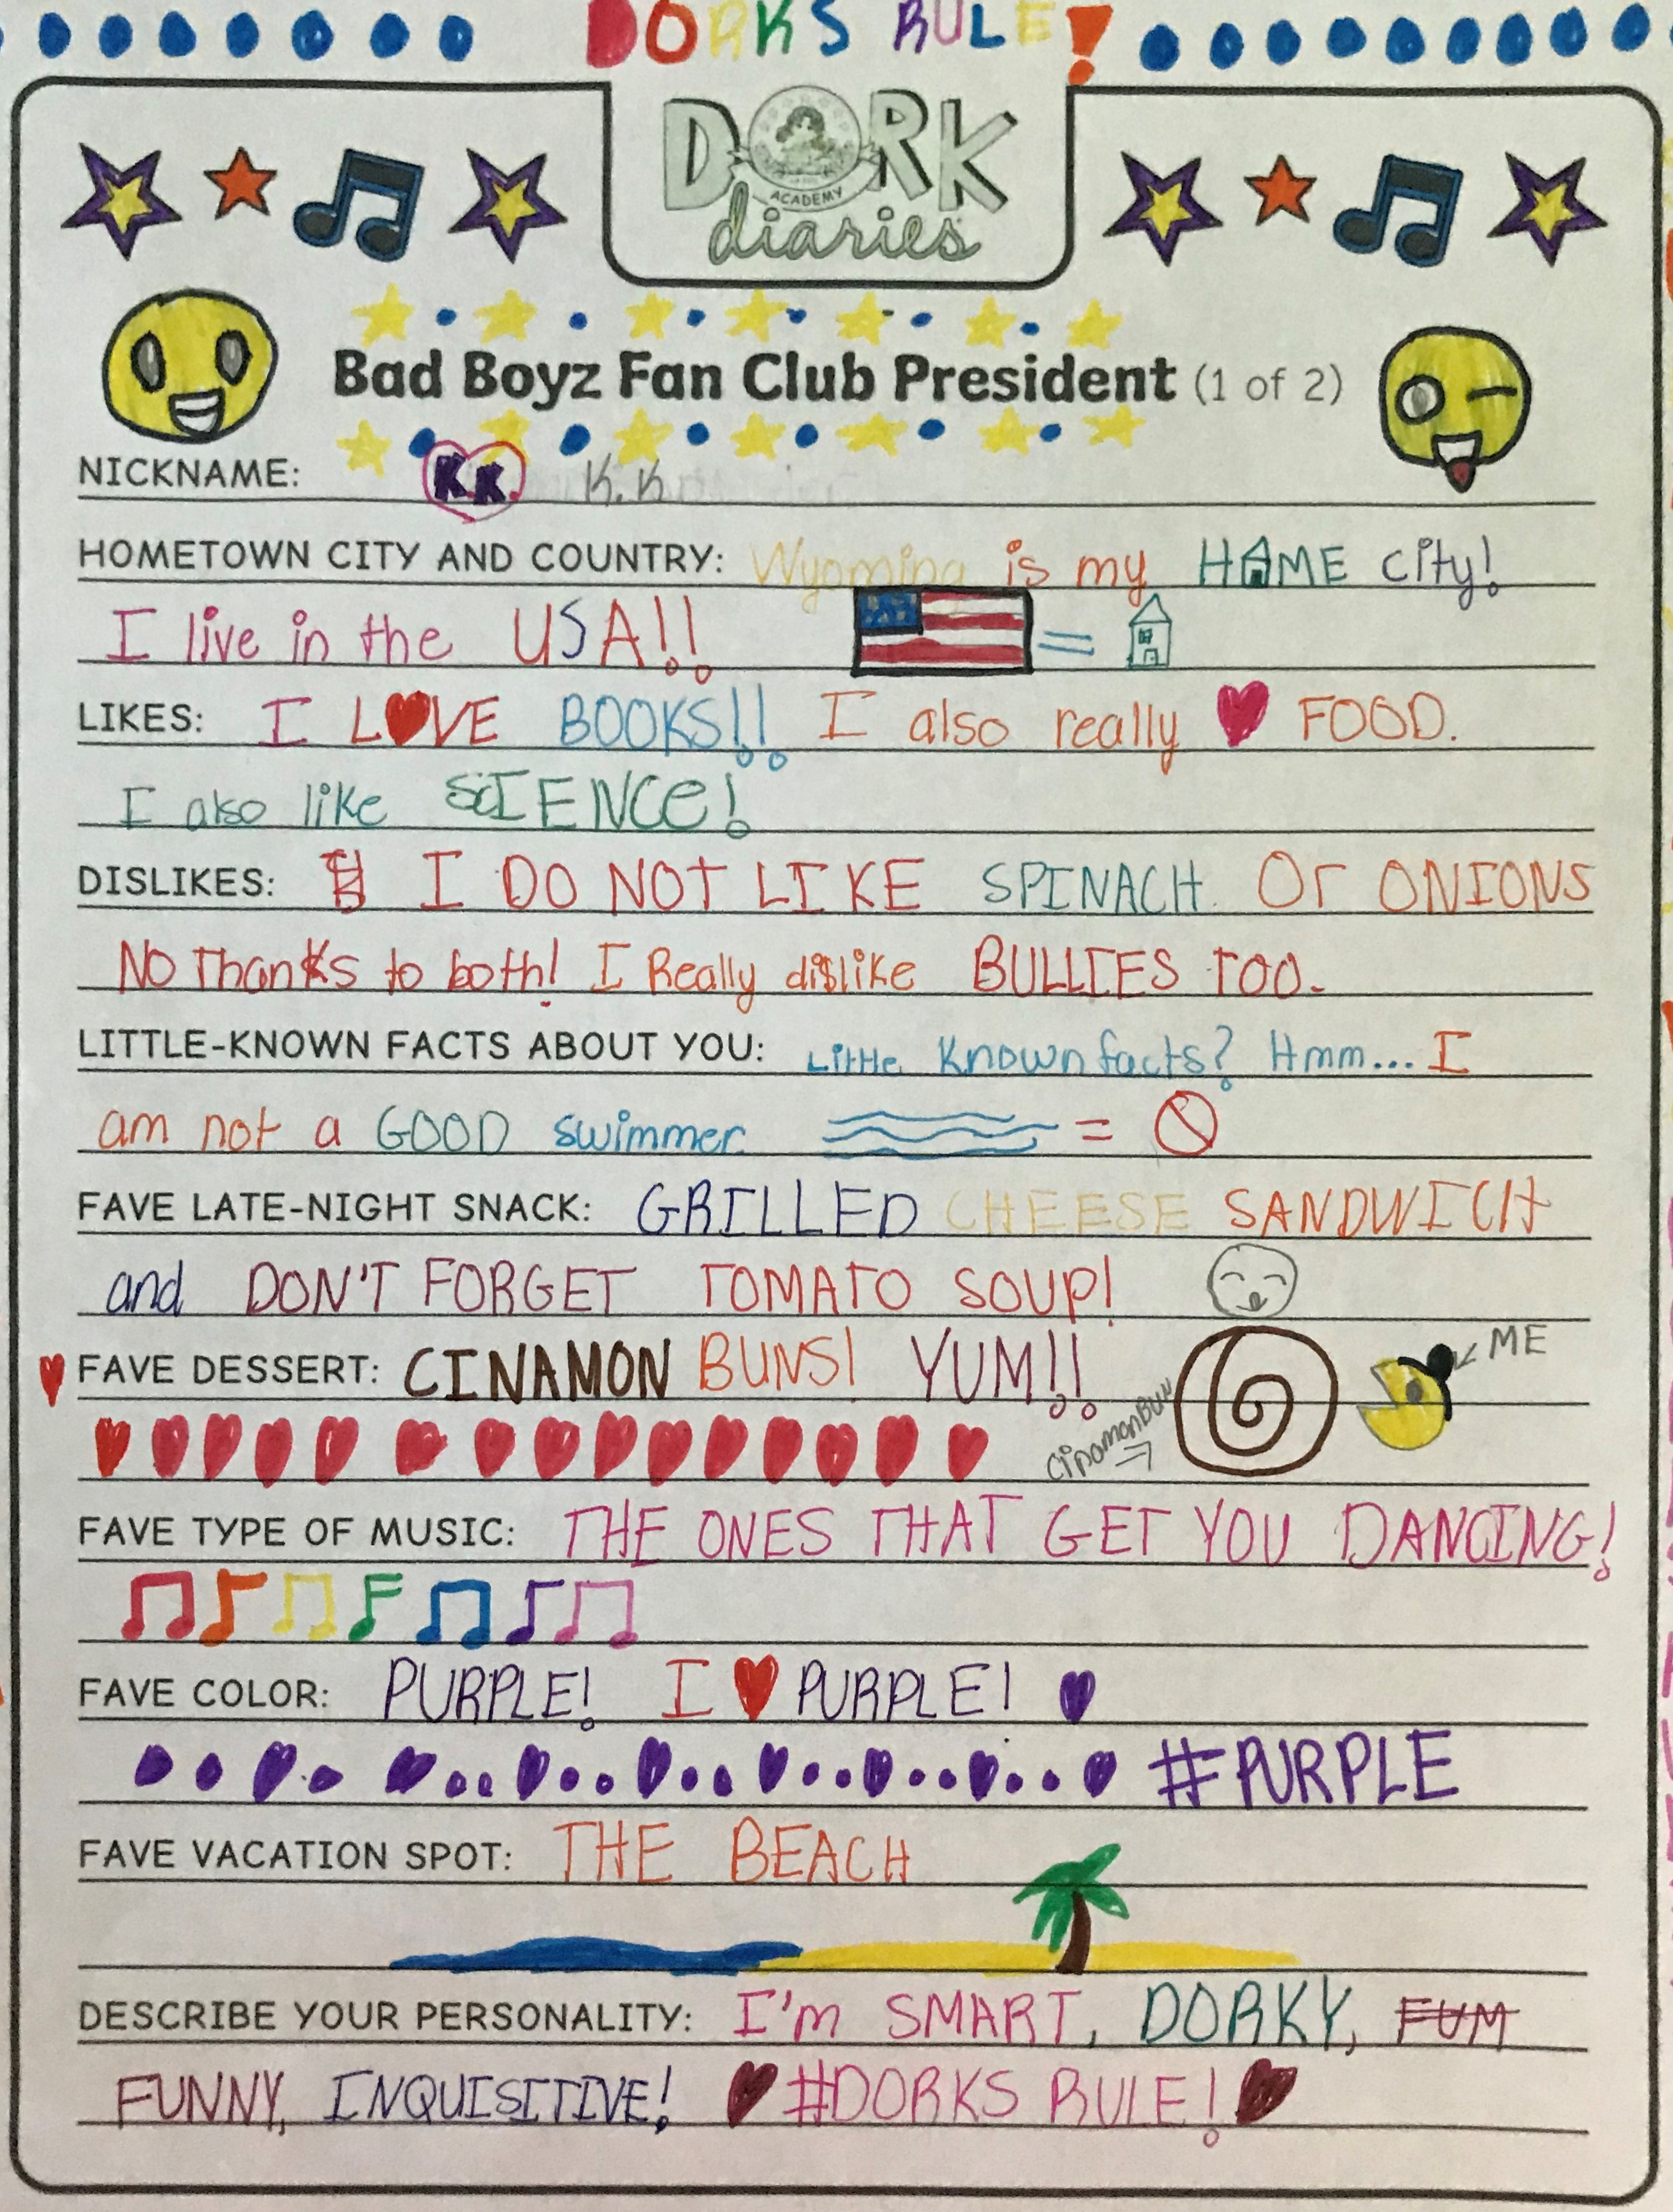 DORKS RULE!
DORK
ACADEMY
diaries
Bad Boyz Fan Club President (1 of 2)
NICKNAME: K.K. K.K
HOMETOWN CITY AND COUNTRY: Wyoming is my HOME city!
I live in the USA!! =
LIKES: I LOVE BOOKS!! I also really ♥ FOOD.
I also like SCIENCE!
DISLIKES: I DO NOT LIKE SPINACH Or ONIONS
No Thanks to both! I Really dislike BULLIES TOO.
LITTLE-KNOWN FACTS ABOUT YOU: Little Known facts? Hmm... I
am not a GOOD swimmer =
FAVE LATE-NIGHT SNACK: GRILLED CHEESE SANDWICH
and DON'T FORGET TOMATO SOUP!
FAVE DESSERT: CINAMON BUNS! YUM!! ME
CinamonBun
FAVE TYPE OF MUSIC: THE ONES THAT GET YOU DANCING!
FAVE COLOR: PURPLE! I ♥ PURPLE!
#PURPLE
FAVE VACATION SPOT: THE BEACH
DESCRIBE YOUR PERSONALITY: I'm SMART, DORKY, FUM
FUNNY, INQUISITIVE! #DORKS RULE!